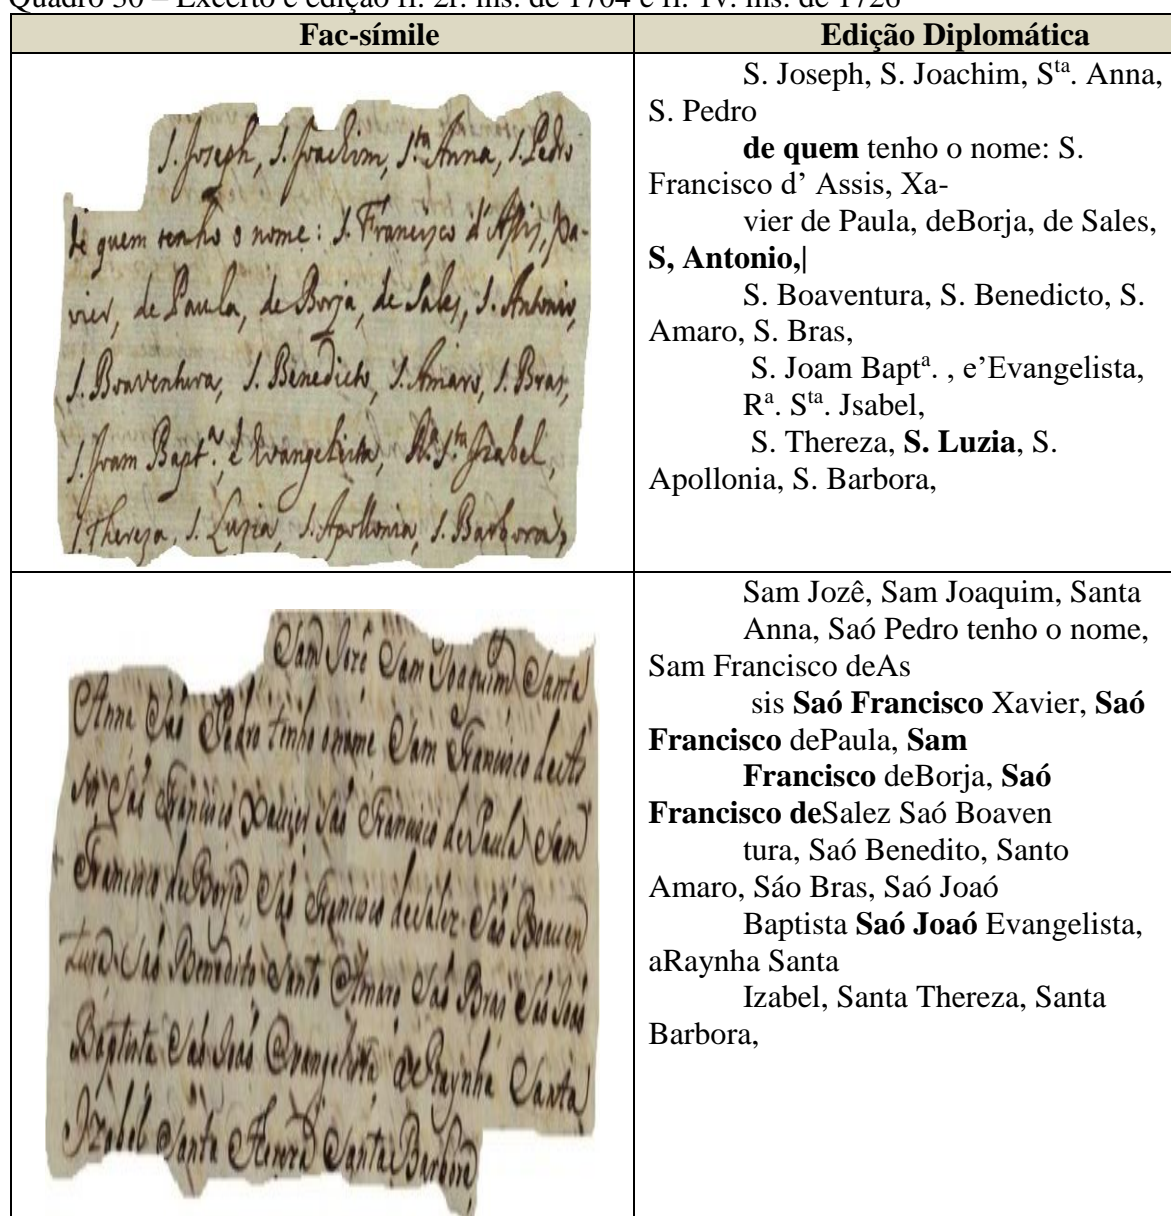 Quadro 30 – Excerto e edição fl. 2r. ms. de 1704 e fl. 1v. ms. de 1726
Fac-símile
Edição Diplomática
S. Joseph, S. Joachim, S.ta Anna, S. Pedro
de quem tenho o nome: S. Francisco d'Assis, Xa-
vier, de Paula, de Borja, de Sales, S. Antonio,
S. Boaventura, S. Benedicto, S. Amaro, S. Bras,
S. Joam Bapt.ª, e Evangelista, R.ª S.ta Jzabel,
S. Thereza, S. Luzia, S. Apollonia, S. Barbora,
S. Joseph, S. Joachim, Sᵗᵃ. Anna,
S. Pedro
de quem tenho o nome: S.
Francisco d’ Assis, Xa-
vier de Paula, deBorja, de Sales,
S, Antonio,|
S. Boaventura, S. Benedicto, S.
Amaro, S. Bras,
S. Joam Baptᵃ. , e’Evangelista,
Rᵃ. Sᵗᵃ. Jsabel,
S. Thereza, S. Luzia, S.
Apollonia, S. Barbora,
Sam Jozê Sam Joaquim Santa
Anna Saó Pedro tenho o nome Sam Francisco deAs
sis Saó Francisco Xavier Saó Francisco dePaula Sam
Francisco deBorja Saó Francisco deSalez Saó Boaven
tura Saó Benedito Santo Amaro Saó Bras Saó Joaó
Baptista Saó Joaó Evangelista aRaynha Santa
Izabel Santa Thereza Santa Barbora
Sam Jozê, Sam Joaquim, Santa
Anna, Saó Pedro tenho o nome,
Sam Francisco deAs
sis Saó Francisco Xavier, Saó
Francisco dePaula, Sam
Francisco deBorja, Saó
Francisco deSalez Saó Boaven
tura, Saó Benedito, Santo
Amaro, Sáo Bras, Saó Joaó
Baptista Saó Joaó Evangelista,
aRaynha Santa
Izabel, Santa Thereza, Santa
Barbora,